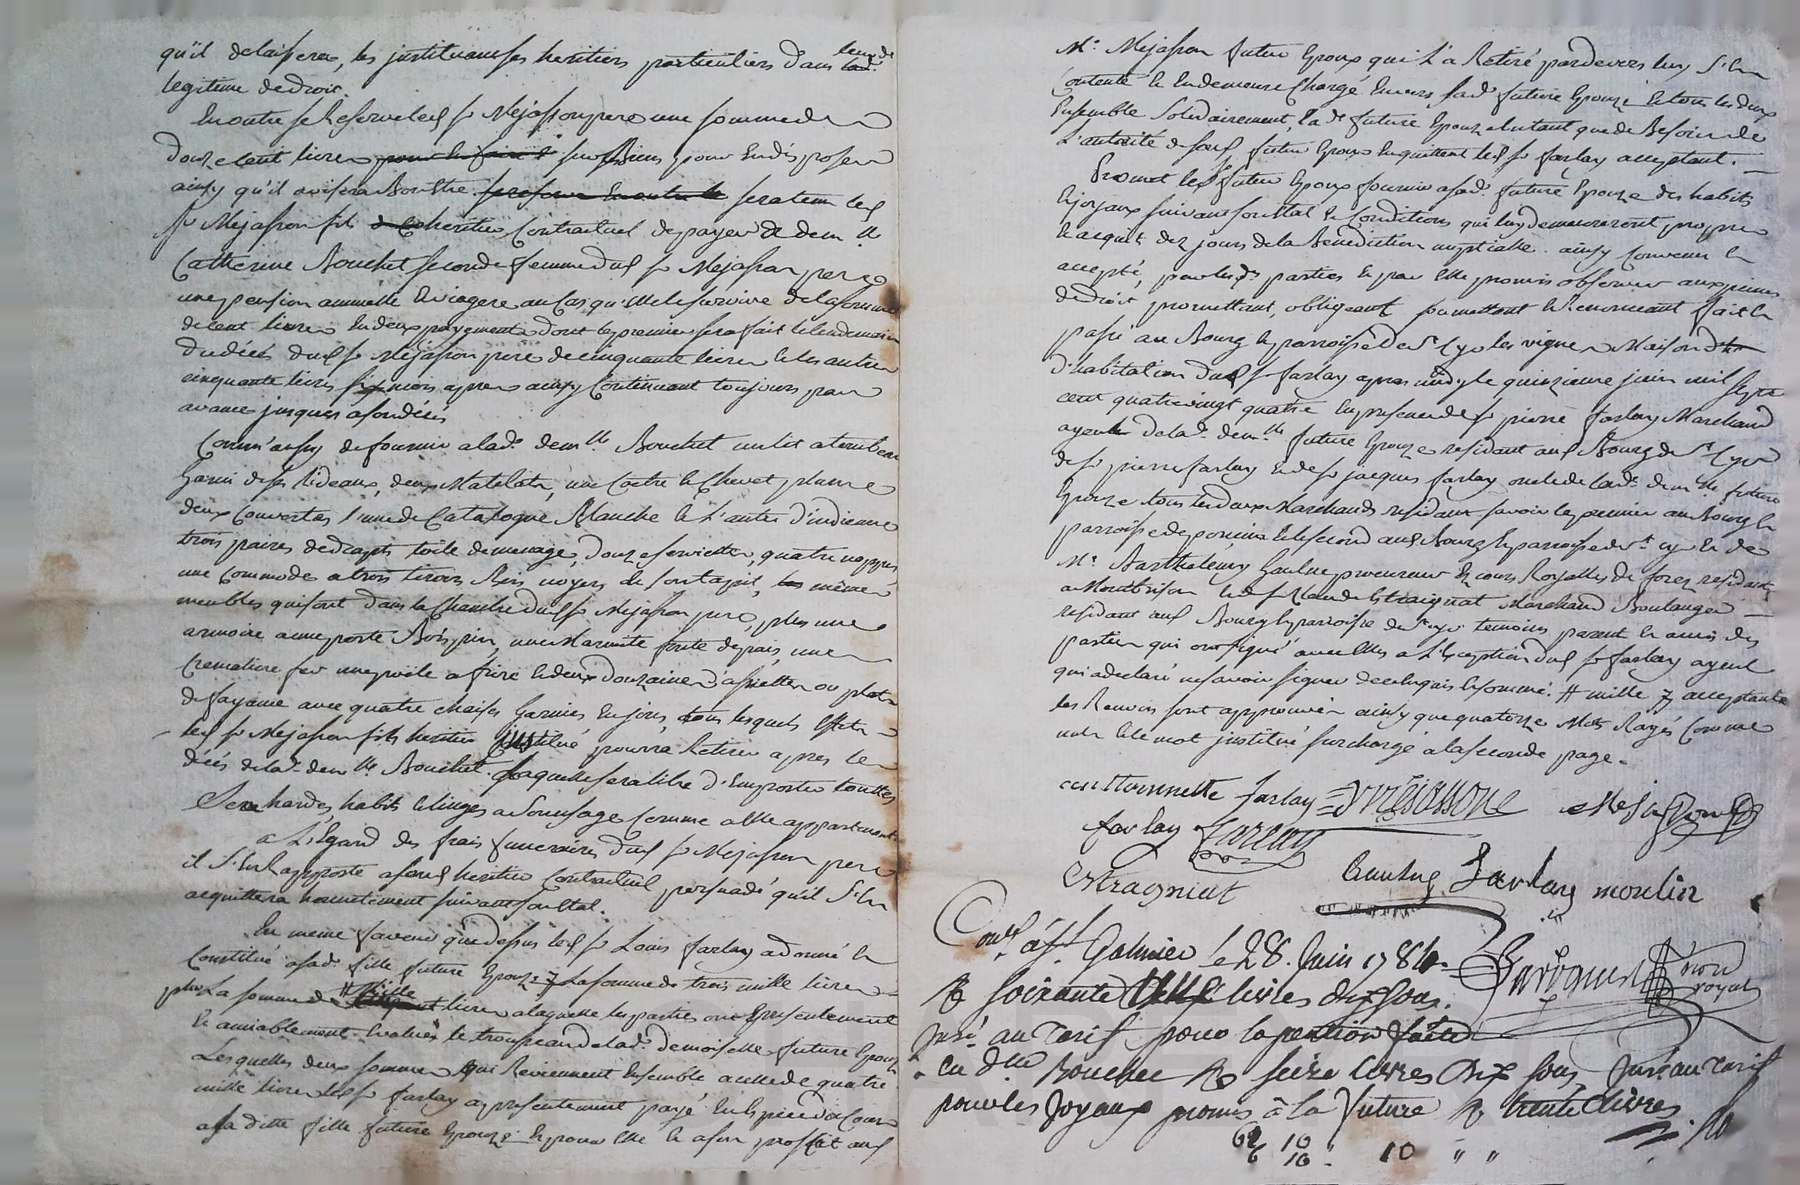 qu'il delaissera, les instituant ses heritiers particuliers dans leur de
legitime de droit.
En outre se Reserve led. sr Mejasson pere une somme de
douze cent livres sur ses Biens pour en disposer
ainsy qu'il avisera Bon Etre. sera tenu led.
sr Mejasson fils heritier Contractuel de payer à dem.lle
Catherine Bouchet seconde femme dud. sr Mejasson pere
une pension annuelle et viagere au cas qu'elle le survive de la somme
de cent livres en deux payements dont le premier sera fait le lendemain
du décès dud. sr Mejasson pere de cinquante livres et les autres
cinquante livres six mois apres ainsy Continuant toujours par
avance jusques a son décès
Comm'aussy de fournir a lad. dem.lle Bouchet un lit a tombeau
Garni de ses Rideaux, deux Matelats, une Coetre et Chevet plume
deux Couvertes l'une de Catalogne Blanche et L'autre d'indienne
trois paires de draps toile de menage, douze serviettes, quatre nappes
une Commode a trois tiroirs Bois noyer et son tapis, mêmes
meubles qui sont dans la Chambre dud. sr Mejasson pere, plus une
armoire a une porte Bois pin, une Marmite fonte de pais, une
Cremaliere fer une poile a frire et deux douzaines d'assiettes ou plats
de fayance avec quatre chaises Garnies en joncs, tous lesquels Effets
led. sr Mejasson fils heritier institué pourra Retirer apres le
décès de lad. dem.lle Bouchet. laquelle sera libre d'Emporter touttes
Ses hardes, habits et linges a Son usage Comme a Elle appartenants.
a L'Egard des frais funeraires dud. sr Mejasson pere
il S'En Rapporte a son d. heritier Contractuel persuadé qu'il S'En
acquittera honnetement suivant son Etat.
En meme faveur que dessus led. sr Louis farlay a donné et
Constitué a sad. fille future Epouze 7 La somme de trois mille livres
plus La somme de # Mille livres a laquelle les parties ont presentement
et amiablement Evalués le trousseau de lad. demoiselle future Epouze
Lesquelles deux sommes qui Reviennent Ensemble a celle de quatre
mille livres led. sr farlay a presentement payé en Especes de Cours
a sa ditte fille future Epouze et pour Elle et a son proffit aud.
Mr. Mejasson futur Epoux qui L'a Retiré pardevers luy S'En
Contente et En demeure Chargé Envers sad. future Epouze et tous les deux
Ensemble Solidairement, la d. future Epouze Entant que de Besoin de
L'autorité de son d. futur Epoux En quittent led. sr farlay acceptant.
Promet led. sr futur Epoux fournir a sad. future Epouze des habits
et joyaux suivant son Etat et Condition qui luy demeureront propres
et acquis dez jours de la Benediction nuptialle. ainsy Convenu et
accepté, par les des parties et par Elle promis observer aux peines
de droit promettant, obligeant soumettant et Renonceant fait et
passé au Bourg et parroisse de St Cyr les vignes Maison
d'habitation dud. sr farlay apres midy le quinzieme juin mil Sept
cent quatre vingt quatre En presence de sr pierre farlay Marchand
ayeul de lad. dem.lle future Epouze residant aud. Bourg de St Cyr
de sr pierre farlay et de sr jacques farlay oncle de lad. dem.lle future
Epouze tous les deux Marchands residant savoir le premier au Bourg et
parroisse de poncins et le second aud. Bourg et parroisse de St cyr et de
Mr. Barthelemy Gaulne procureur Es cours Royalles de forez residant
a Montbrison et de sr Claude Estraignat Marchand Boulanger
residant aud. Bourg et parroisse de St cyr temoins parent et amis des
parties qui ont signé avec Elles a L'Exception dud. sr farlay ayeul
qui a declaré ne savoir signer de ce Enquis et sommé. # mille 7 acceptante
les Renvois sont approuvés ainsy que quatorze Mots Rayés Comme
nuls et le mot institué surchargé a la seconde page.
Toinnette farlay Mejassone Mejasson
farlay farlay
Estragniat Gaulne Farlay moulin
Con.lé à St. Galmier le 28. Juin 1784.
R soixante livres dix sous.
Juré au Tarif pour la pention faite
en dlle Bouchee R seize livres Dix sous, Juré au Tarif
pour les Joyaux promis à la future R trente livres.
10
6 10 . 10 " "